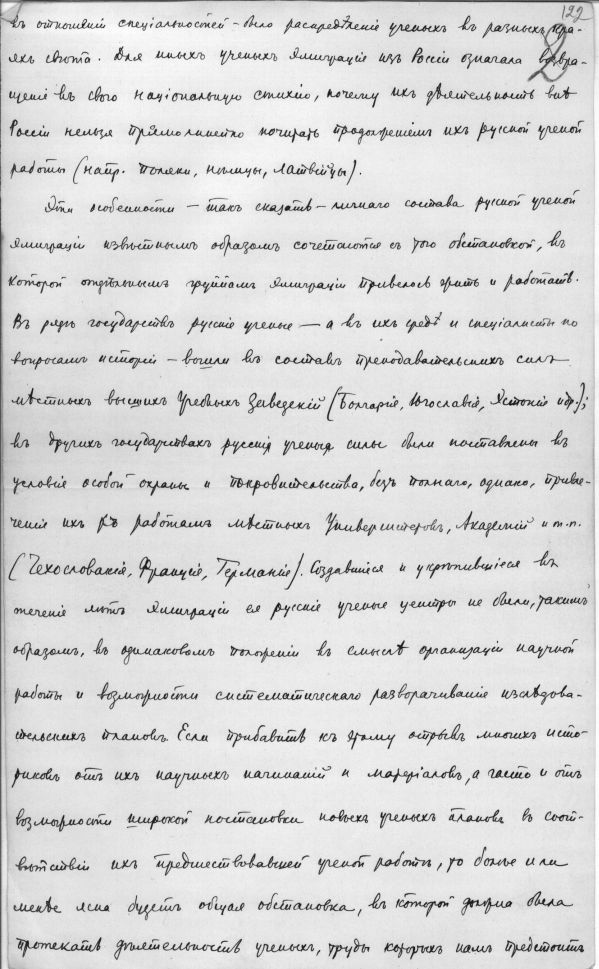 122
2
въ отношеніи спеціальностей – было распредѣленіе ученыхъ въ разныхъ кра-
яхъ свѣта. Для иныхъ ученыхъ эмиграція изъ Россіи означала возвра-
щеніе въ свою національную стихію, почему ихъ дѣятельность внѣ
Россіи нельзя прямолинейно почитать продолженіемъ ихъ русской ученой
работы (напр. поляки, нѣмцы, латвійцы).
Эти особенности – такъ сказать – личнаго состава русской ученой
эмиграціи извѣстнымъ образомъ сочетаются съ того обстановкой, въ
которой отдѣльнымъ группамъ эмиграціи привелось жить и работать.
Въ рядѣ государствъ русскіе ученые – а въ ихъ средѣ и спеціалисты по
вопросамъ исторіи – вошли въ составъ преподавательскихъ силъ
мѣстныхъ высшихъ учебныхъ заведеній (Болгарія, Югославія, Эстонія и др.);
въ другихъ государствахъ русскія ученыя силы были поставлены въ
условія особой охраны и покровительства, безъ полнаго, однако, привле-
ченія ихъ къ работамъ мѣстныхъ Университетовъ, Академій и т.п.
(Чехословакія, Франція, Германія). Создавшіеся и укрѣпившіеся въ
теченіе лѣтъ эмиграціи ея русскіе ученые центры не были, такимъ
образомъ, въ одинаковомъ положеніи въ смыслѣ организаціи научной
работы и возможности систематическаго разворачиванія изслѣдова-
тельскихъ плановъ. Если прибавить къ этому отрывъ многихъ исто-
риковъ отъ ихъ научныхъ начинаній и матеріаловъ, а часто и отъ
возможности широкой постановки новыхъ ученыхъ плановъ въ соот-
вѣтствіи ихъ предшествовавшей ученой работѣ, то болѣе или
менѣе ясна будетъ общая обстановка, въ которой должна была
протекать дѣятельность ученыхъ, труды которыхъ намъ предстоитъ